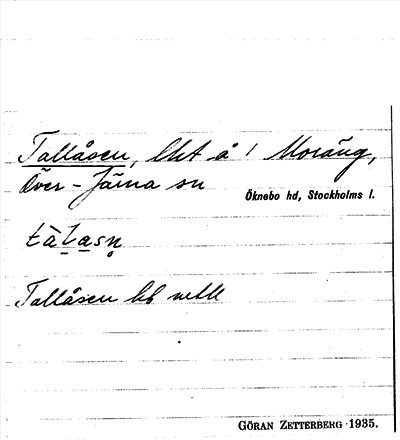 Tallåsen, lht å 1 Moräng,
Över-Järna sn
Öknebo hd, Stockholms l.
Tallåsen
GÖRAN ZETTERBERG 1935.